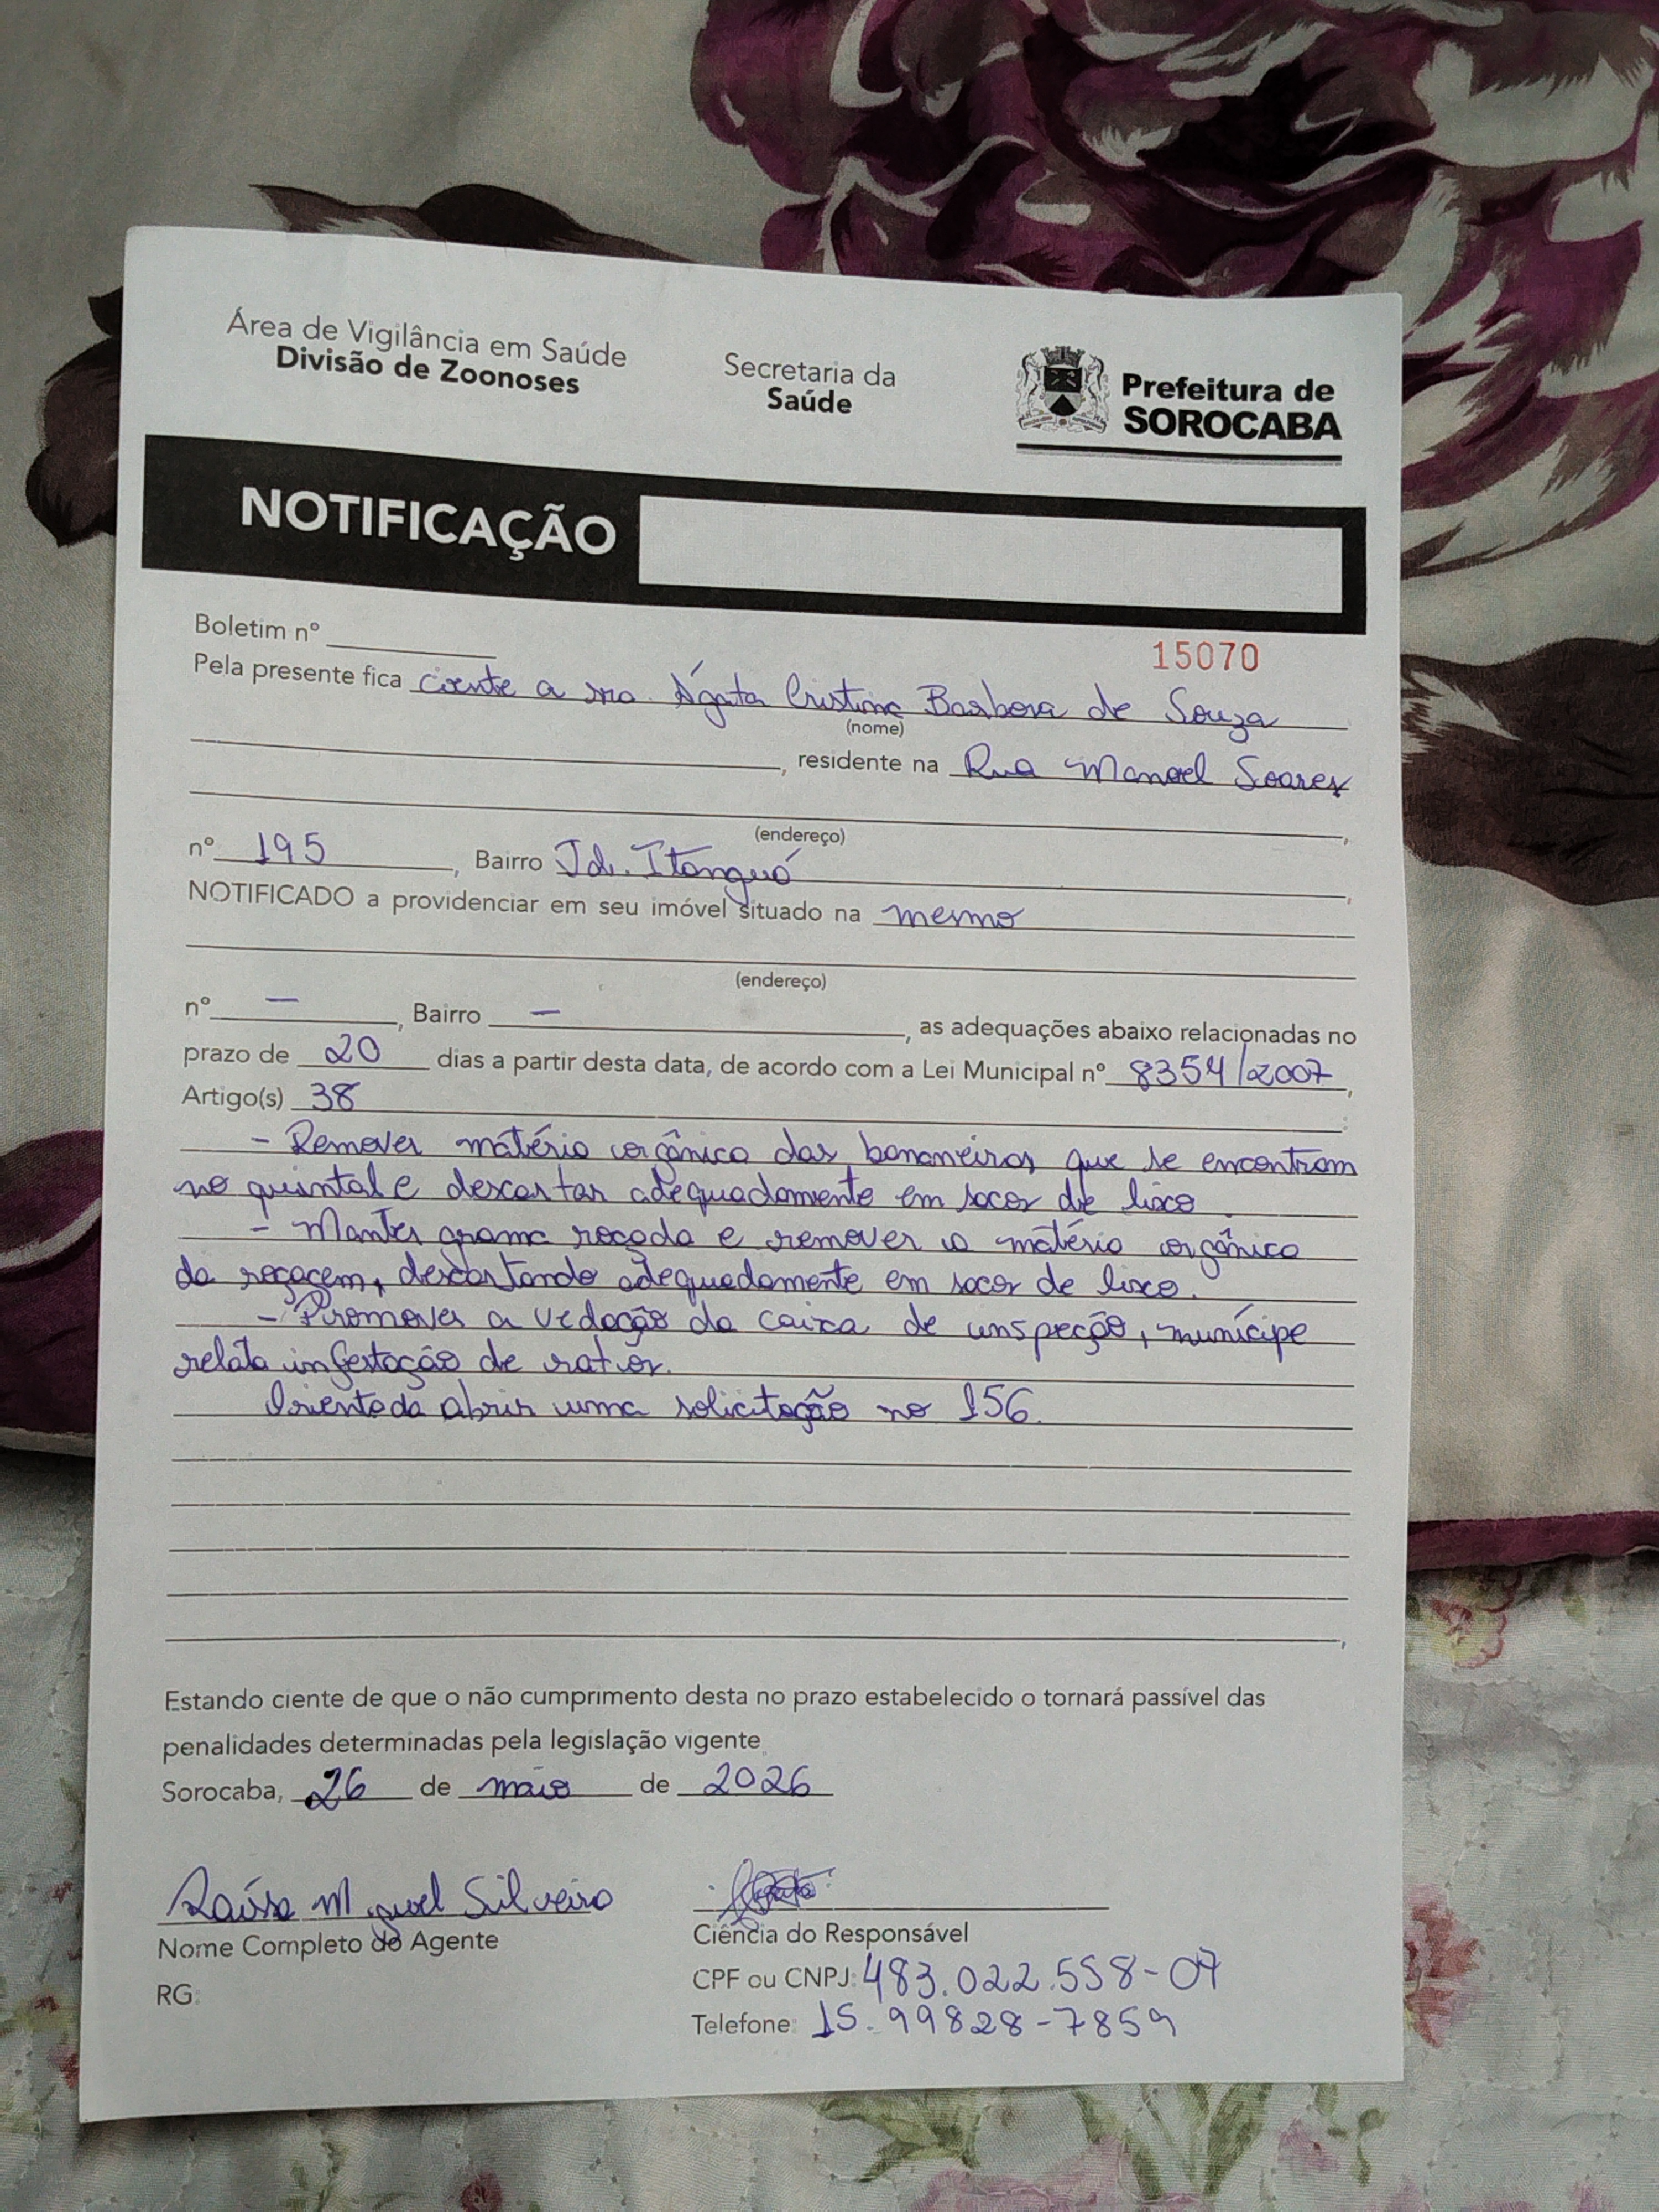 Área de Vigilância em Saúde
Divisão de Zoonoses
Secretaria da
Saúde
Prefeitura de
SOROCABA
NOTIFICAÇÃO
Boletim nº
15070
Pela presente fica ciente a sra. Ágata Cristina Barbosa de Souza
(nome)
, residente na Rua Manoel Soares
(endereço)
nº 195, Bairro Jd. Itanguá
NOTIFICADO a providenciar em seu imóvel situado na mesmo
(endereço)
nº —, Bairro —, as adequações abaixo relacionadas no
prazo de 20 dias a partir desta data, de acordo com a Lei Municipal nº 8354/2007,
Artigo(s) 38:
- Remover matéria orgânica das bananeiras que se encontram
no quintal e descartar adequadamente em sacos de lixo.
- Manter grama roçada e remover a matéria orgânica
da roçagem, descartando adequadamente em sacos de lixo.
- Promover a vedação da caixa de inspeção, munícipe
relata infestação de ratos.
Orientada abrir uma solicitação no 156.
Estando ciente de que o não cumprimento desta no prazo estabelecido o tornará passível das
penalidades determinadas pela legislação vigente.
Sorocaba, 26 de maio de 2026
Raísa Miguel Silveira
Nome Completo do Agente
RG:
Ciência do Responsável
CPF ou CNPJ: 483.022.558-07
Telefone: 15.99828-7859